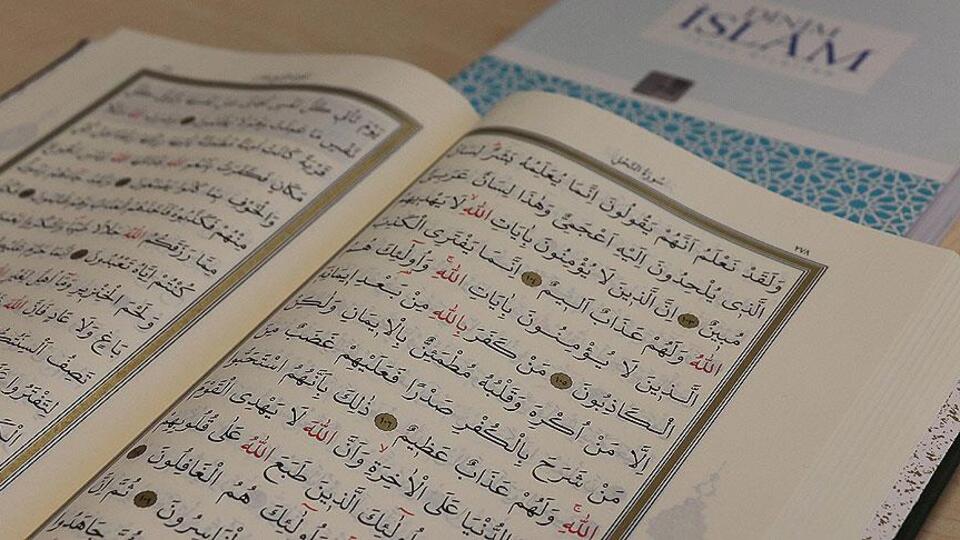 DİNİM
İSLAM
سُورَةُ النَّحْلِ
٢٧٨
وَلَقَدْ نَعْلَمُ اَنَّهُمْ يَقُولُونَ اِنَّمَا يُعَلِّمُهُ بَشَرٌ لِسَانُ
الَّذِي يُلْحِدُونَ اِلَيْهِ اَعْجَمِيٌّ وَهٰذَا لِسَانٌ عَرَبِيٌّ
مُبِينٌ ١٠٣ اِنَّ الَّذِينَ لَا يُؤْمِنُونَ بِاٰيَاتِ اللّٰهِ لَا يَهْدِيهِمُ
اللّٰهُ وَلَهُمْ عَذَابٌ اَلِيمٌ ١٠٤ اِنَّمَا يَفْتَرِي الْكَذِبَ
الَّذِينَ لَا يُؤْمِنُونَ بِاٰيَاتِ اللّٰهِ وَاُولٰٓئِكَ هُمُ
الْكَاذِبُونَ ١٠٥ مَنْ كَفَرَ بِاللّٰهِ مِنْ بَعْدِ اِيمَانِهِ
اِلَّا مَنْ اُكْرِهَ وَقَلْبُهُ مُطْمَئِنٌّ بِالْاِيمَانِ وَلٰكِنْ
مَنْ شَرَحَ بِالْكُفْرِ صَدْرًا فَعَلَيْهِمْ غَضَبٌ مِنَ
اللّٰهِ وَلَهُمْ عَذَابٌ عَظِيمٌ ١٠٦ ذٰلِكَ بِاَنَّهُمُ اسْتَحَبُّوا
الدُّنْيَا عَلَى الْاٰخِرَةِ وَاَنَّ اللّٰهَ لَا يَهْدِي الْقَوْمَ
اُولٰٓئِكَ الَّذِينَ طَبَعَ اللّٰهُ عَلٰى قُلُوبِهِمْ
وَاُولٰٓئِكَ هُمُ الْغَافِلُونَ
الْخَاسِرُونَ ١٠٩ ثُمَّ اِنَّ
جَاهَدُوا
يَوْمَ تَاْتِي كُلُّ نَفْسٍ تُجَادِلُ عَنْ نَفْسِهَا
نَفْسٍ مَا عَمِلَتْ وَهُمْ لَا يُظْلَمُونَ
قَرْيَةً كَانَتْ اٰمِنَةً
مَكَانٍ فَكَفَرَتْ بِاَنْعُمِ اللّٰهِ فَاَذَاقَهَا اللّٰهُ
وَالْخَوْفِ بِمَا كَانُوا يَصْنَعُونَ
مِنْهُمْ فَكَذَّبُوهُ فَاَخَذَهُمُ الْعَذَابُ وَهُمْ ظَالِمُونَ
مِمَّا رَزَقَكُمُ اللّٰهُ حَلَالًا طَيِّبًا
كُنْتُمْ اِيَّاهُ تَعْبُدُونَ اِنَّمَا حَرَّمَ
وَلَحْمَ الْخِنْزِيرِ وَمَا اُهِلَّ لِغَيْرِ
بَاغٍ وَلَا عَادٍ فَاِنَّ اللّٰهَ
تَصِفُ اَلْسِنَتُكُمُ
لِتَفْتَرُوا